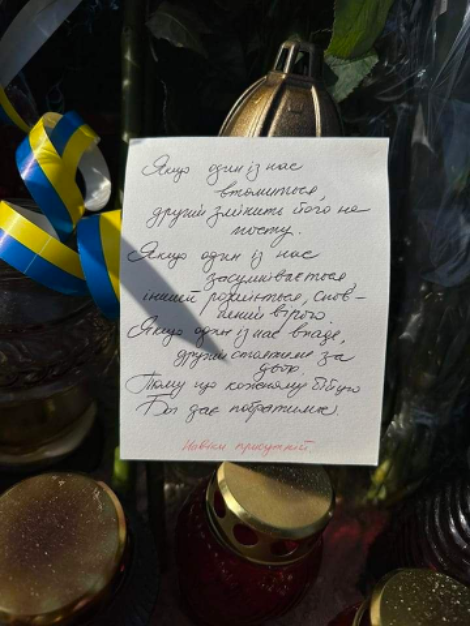 Якщо один із нас
втомиться,
другий змінить його на
посту.
Якщо один із нас
засумнівається
інший розсміється, спов-
нений вірою
Якщо один із нас впаде,
другий стоятиме за
двох.
Тому що кожному бійцю
Бог дає побратима.
Навіки присутній.